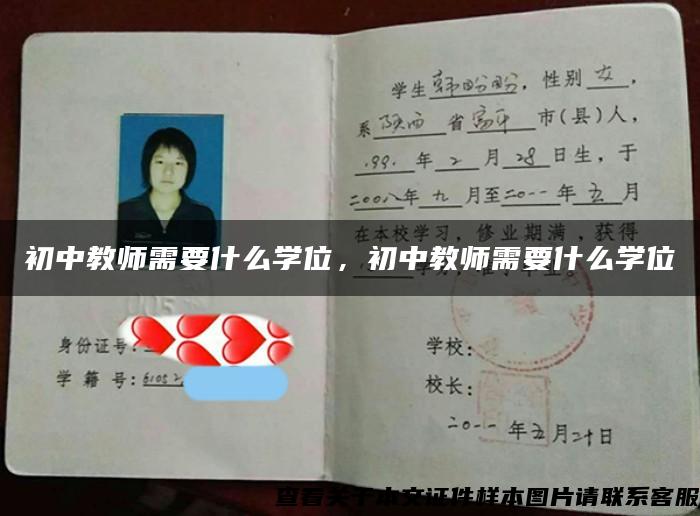 学生韩盼盼，性别女，
系陕西省富平市(县)人，
199.年2月28日生，于
二00八年九月至二0一一年五月
在本校学习，修业期满，获得
初中教师需要什么学位，初中教师需要什么学位
身份证号：
学 籍 号：61052
学校：
校长：
二0一一年五月二十日
查看关于本文证件样本图片请联系客服